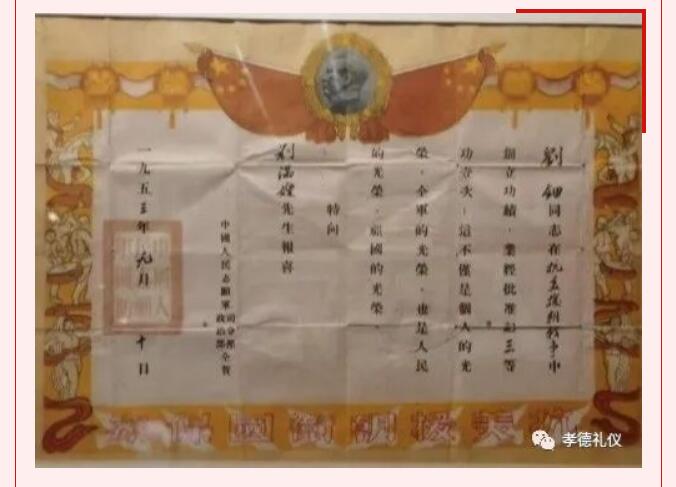 劉鈿同志在抗美援朝战争中
創立功績，業經批准記三等
功壹次，這不僅是個人的光
榮，全軍的光榮，也是人民
的光榮，祖國的光榮。
特向
刘滿嬑先生報喜
中國人民志願軍司令部
政治部仝賀
一九五三年九月 十日
抗美援朝衛國保家
孝德礼仪